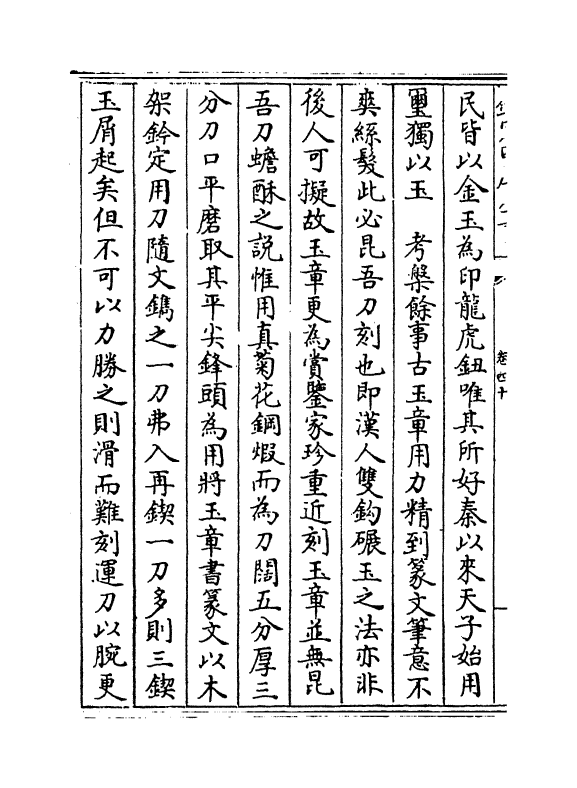 民皆以金玉為印龍虎鈕唯其所好秦以來天子始用
璽獨以玉　考槃餘事古玉章用力精到篆文筆意不
爽絲髮此必昆吾刀刻也即漢人雙鈎碾玉之法亦非
後人可擬故玉章更為賞鑒家珍重近刻玉章並無昆
吾刀蟾酥之説惟用真菊花鋼煅而為刀闊五分厚三
分刀口平磨取其平尖鋒頭為用將玉章書篆文以木
架鈐定用刀隨文鐫之一刀弗入再鍥一刀多則三鍥
玉屑起矣但不可以力勝之則滑而難刻運刀以腕更